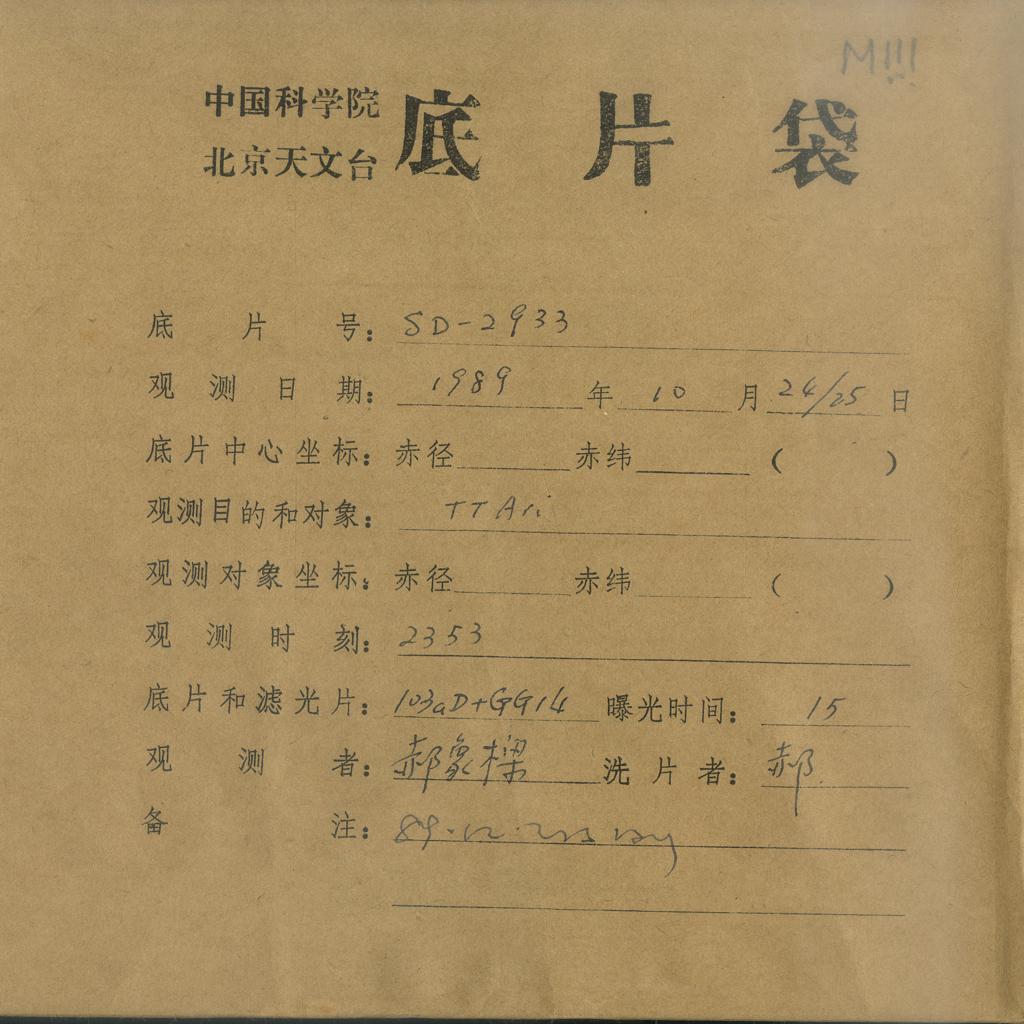 M!!!
中国科学院
北京天文台
底片袋
底片号：SD-2933
观测日期：1989年10月24/25日
底片中心坐标：赤径 赤纬 （ ）
观测目的和对象：TT Ari
观测对象坐标：赤径 赤纬 （ ）
观测时刻：2353
底片和滤光片：103aD+GG14 曝光时间：15
观测者：郝象樑 洗片者：郝
备注：89.12.